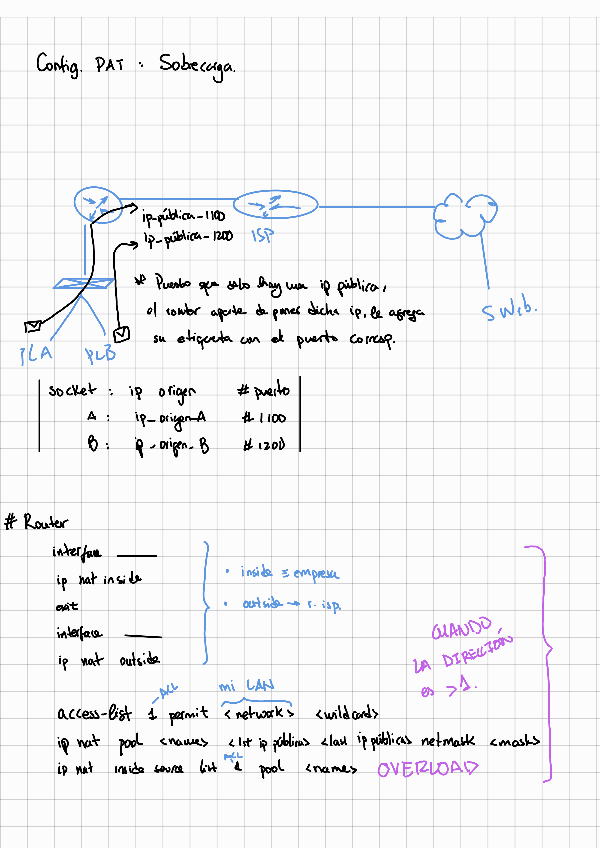 Config. PAT : Sobecarga.
ip-pública-1100
ip-pública-1200
ISP
* Puesto que solo hay una ip pública,
el router aparte de poner dicha ip, le agrega
su etiqueta con el puerto corresp.
S Web.
PCA PCB
socket : ip origen # puerto
A : ip_origen_A # 1100
B : ip_origen_B # 1200
# Router
interfase ____
ip nat inside
exit
interface ____
ip nat outside
• inside ≡ empresa
• outside → r. isp.
CUANDO
LA DIRECCIÓN
es >1.
ACL
mi LAN
access-list 1 permit <network> <wildcard>
ip nat pool <names> <1st ip públicas <last ip públicas netmask <masks>
ACL
ip nat inside source list 1 pool <names> OVERLOAD